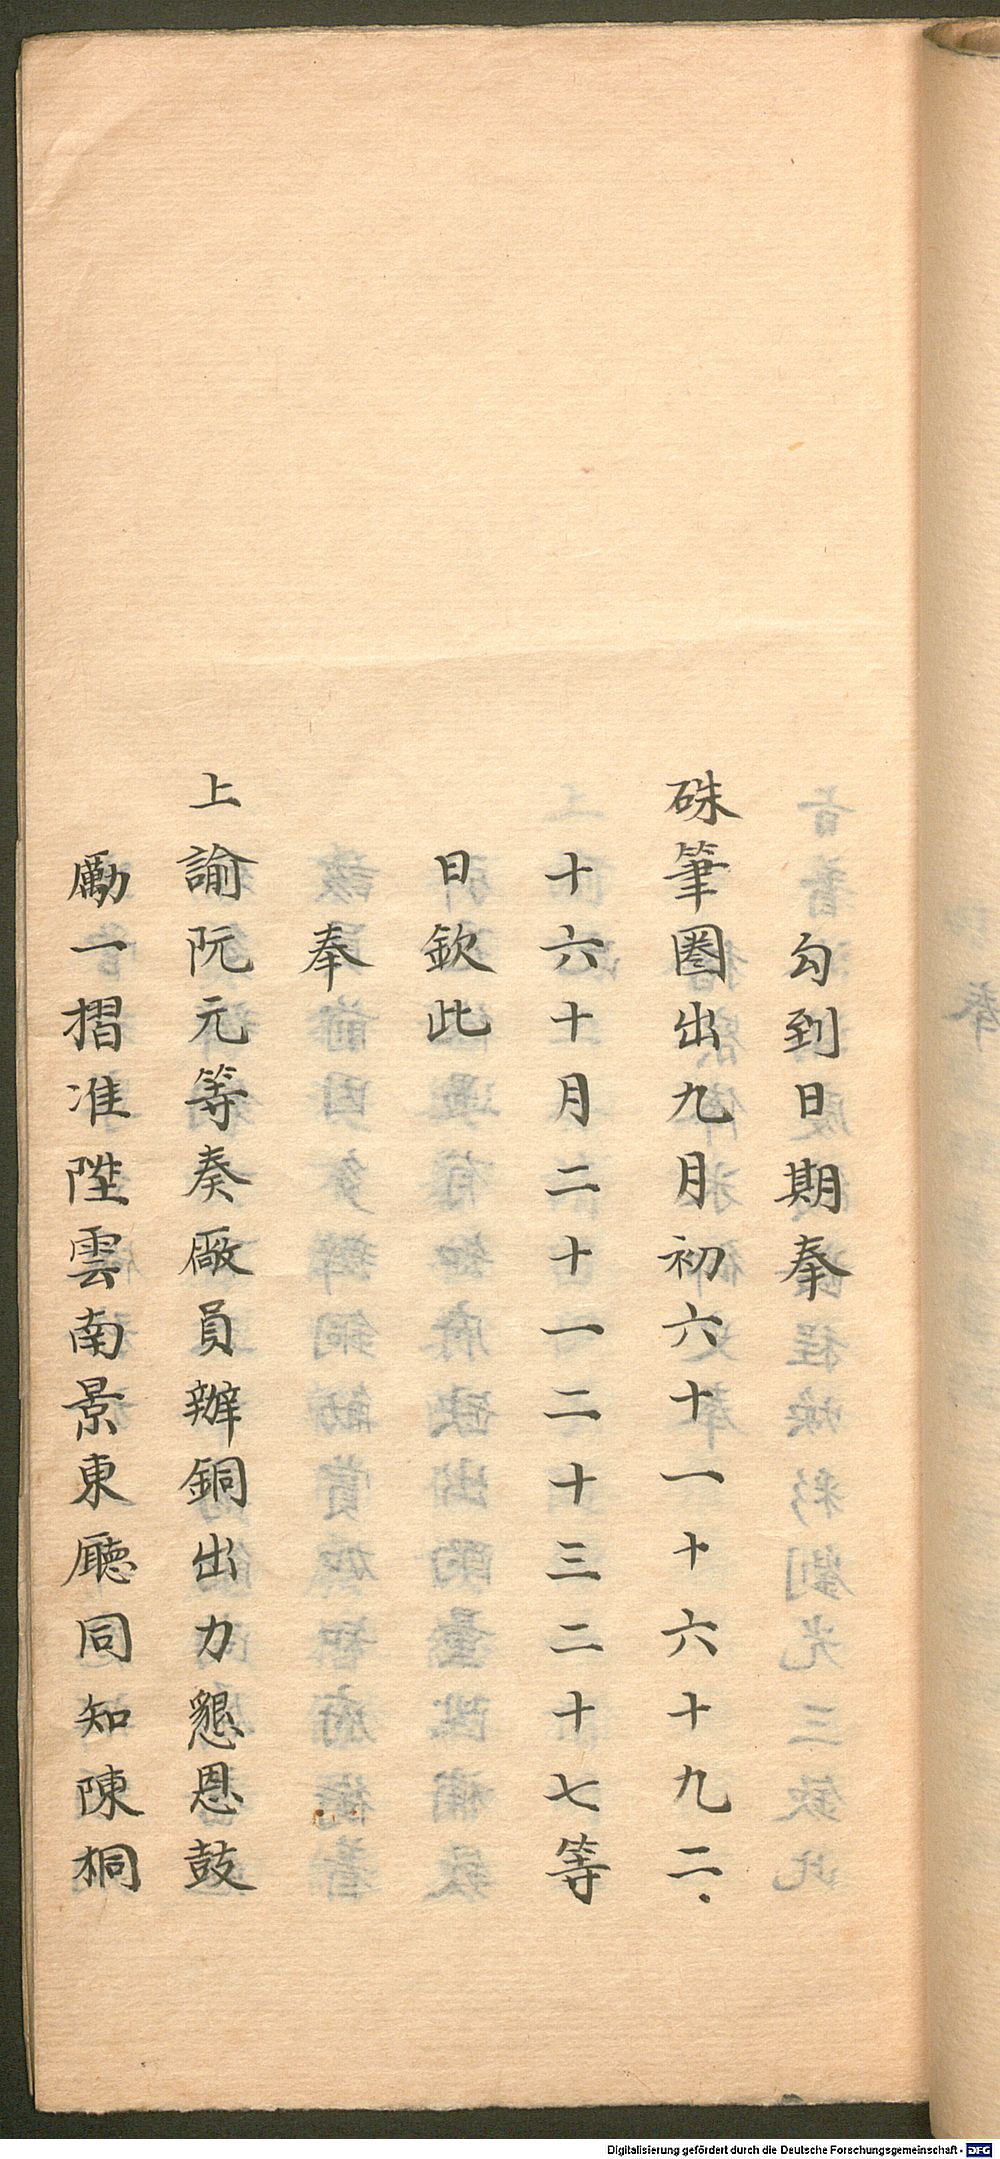 勾到日期奉
硃筆圈出九月初六十一十六十九二
十六十月二十一二十三二十七等
日欽此
奉
上諭阮元等奏廠員辦銅出力懇恩鼓
勵一摺准陞雲南景東廳同知陳桐
Digitalisierung gefördert durch die Deutsche Forschungsgemeinschaft - DFG